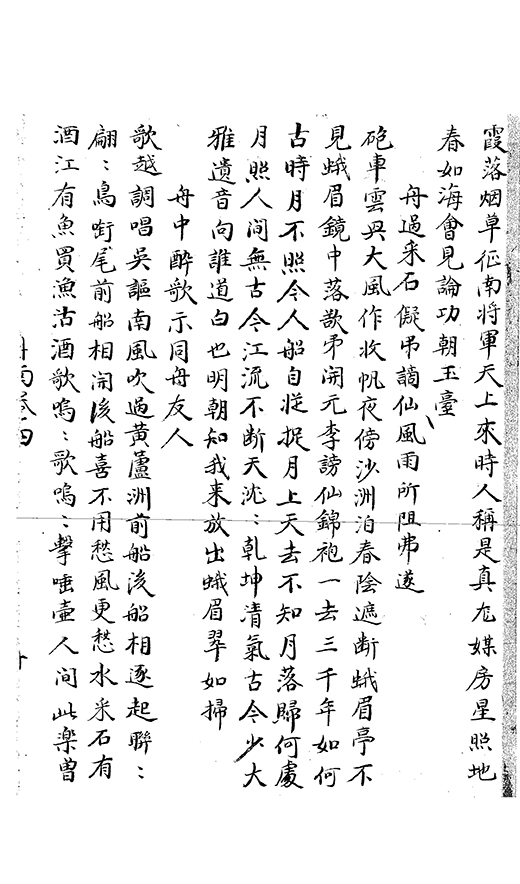 霞落烟草征南将軍天上來時人稱是真尨媒房星照地
春如海會見論功朝玉臺
舟過采石儗弔謫仙風雨所阻弗遂
砲車雲興大風作收帆夜傍沙洲泊春陰遮断蛾眉亭不
見蛾眉鏡中落歘乎開元李謗仙錦袍一去三千年如何
古時月不照今人船自從捉月上天去不知月落歸何處
月照人间無古今江流不断天沈〻乾坤清氣古今少大
雅遺音向誰道白也明朝知我来放出蛾眉翠如掃
舟中醉歌示同舟友人
歌越調唱吳謳南風吹過黄蘆洲前船後船相逐起聨〻
翩〻鳥㘅尾前船相開後船喜不用愁風更愁水采石有
酒江有魚買漁沽酒歌嗚〻歌嗚〻擊唾壷人间此楽曽